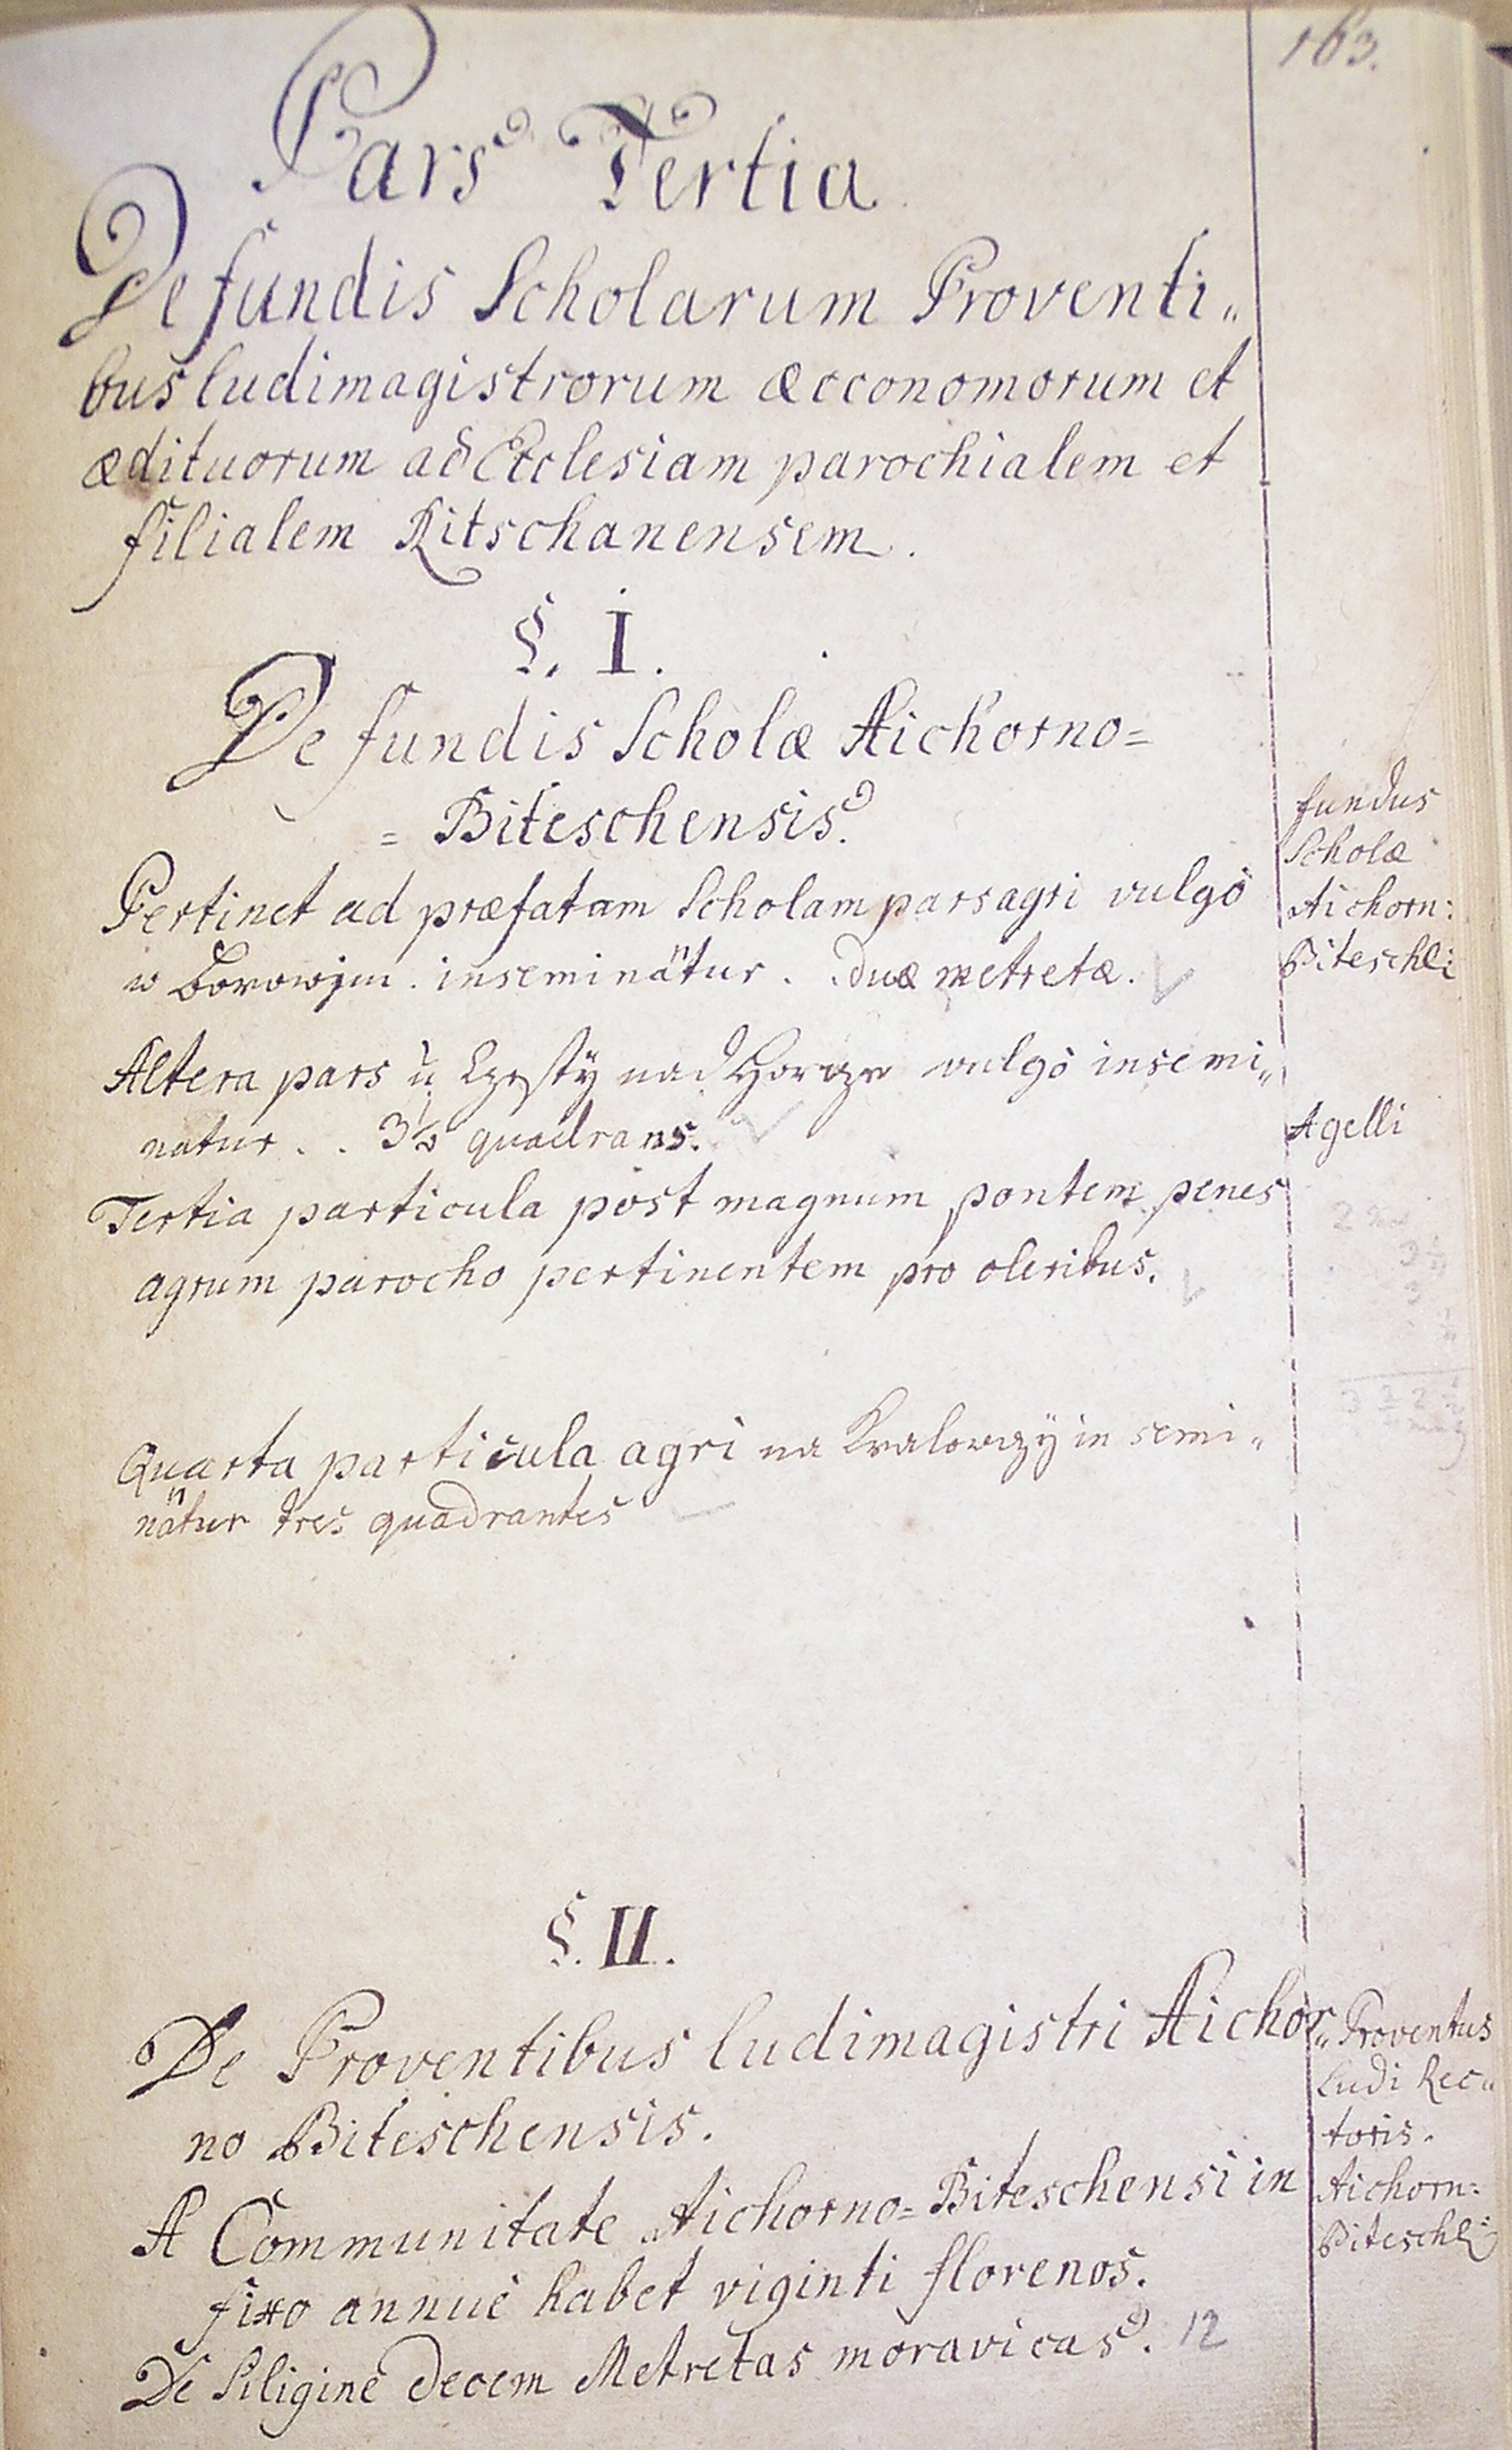 163.
Pars Tertia
De fundis Scholarum Proventi„
bus ludimagistrorum æcconomorum et
ædituorum ad Ecclesiam parochialem et
filialem Ritschanensem.
§. I.
De fundis Scholæ Aichorno=
= Biteschensis.
fundus
Scholæ
Aichorn:
Biteschli:
Pertinet ad præfatam Scholam pars agri vulgò
w Borowým. inseminatur . . duæ metretæ.
Altera pars ù Czesty nad Horcze vulgò insemi„
natur . . 3½ quadrans.
Agelli
Tertia particula post magnum pontem penes
agrum parocho pertinentem pro oleribus.
Quarta particula agri na Kralowczy in semi„
natur tres quadrantes
§. II.
De Proventibus ludimagistri Aichor„
no Biteschensis.
Proventus
Ludi Rec„
toris.
Aichorn:
Biteschli:
A Communitate Aichorno=Biteschensi in
fixo annuè habet viginti florenos.
De Siligine decem Metretas moravicas. 12